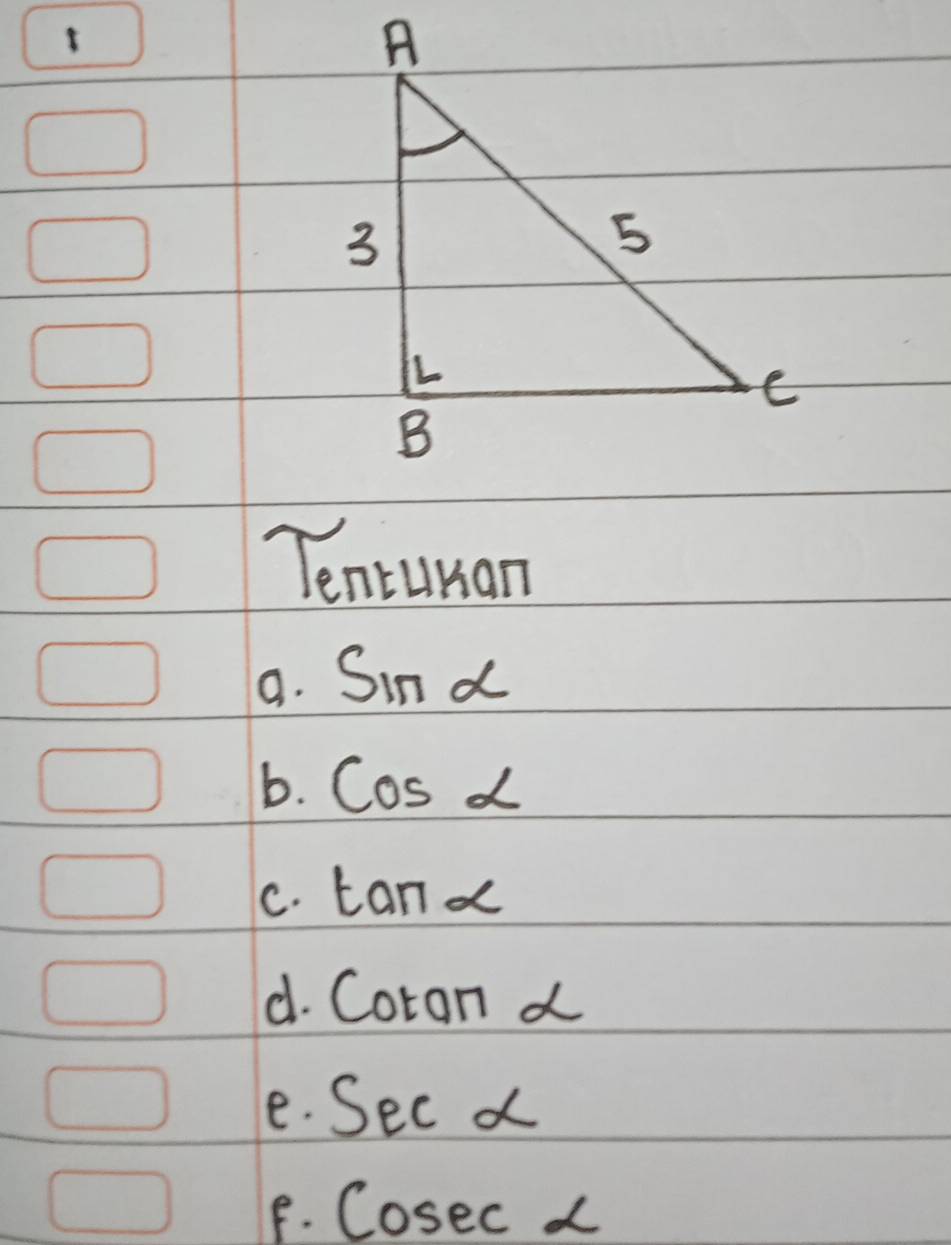 1
A
3
5
B
C
Tentukan
a. Sin α
b. Cos α
c. tan α
d. Cotan α
e. Sec α
f. Cosec α